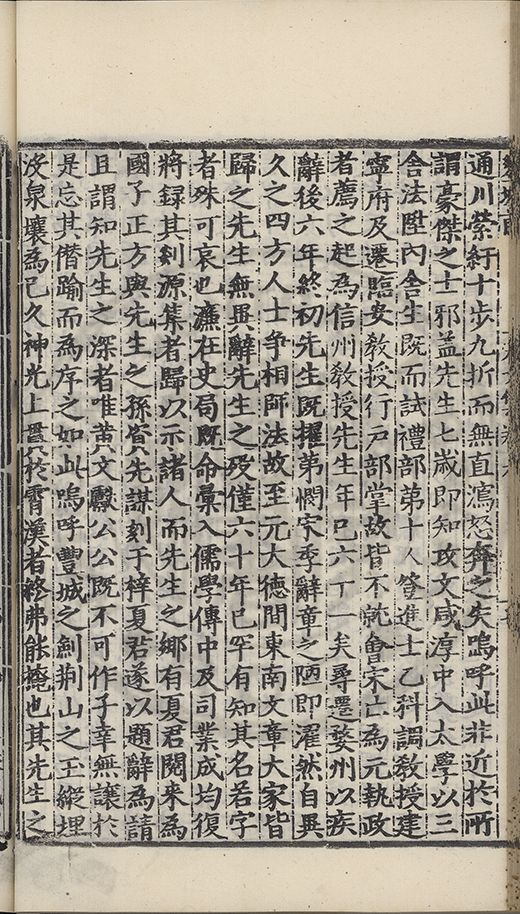 通川縈紆十步九折而無直瀉怒奔之失嗚呼此非近於所
謂豪傑之士邪盖先生七歲即知攻文咸淳中入太學以三
舍法陞內舍生既而試禮部第十人登進士乙科調教授建
寧府及遷臨安教授行戶部掌故皆不就會宋亡為元執政
者薦之起為信州教授先生年已六丁一矣尋遷婺州以疾
辭後六年終初先生既擢第憫宋季辭章之陋即濯然自異
久之四方人士爭相師法故至元大德間東南文章大家皆
歸之先生無異辭先生之歿僅六十年已罕有知其名若字
者殊可哀也濂在史局既命彙入儒學傳中及司業成均復
將録其剡源集者歸以示諸人而先生之鄉有夏君閱来為
國子正方與先生之孫資先謀刻于梓夏君遂以題辭為請
且謂知先生之深者唯黄文獻公公既不可作子幸無讓於
是忘其僭踰而為序之如此嗚呼豐城之劍荊山之玉縱埋
没泉壤為已久神光上貫於霄漢者終弗能掩也其先生之